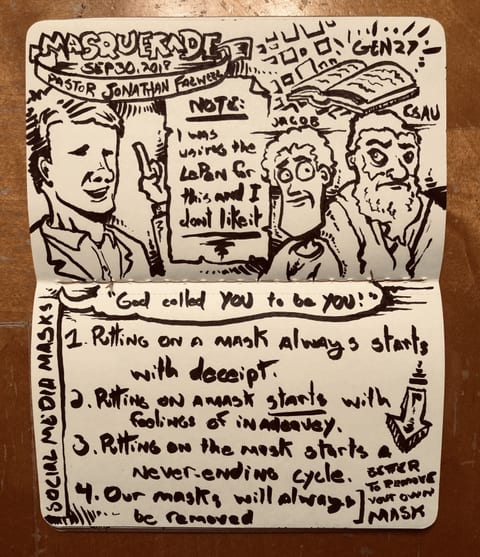 MASQUERADE
SEP 30, 2018
PASTOR JONATHAN FALWELL
NOTE:
I was
using the
LaPen for
this and I
dont like it
JACOB
GEN 27
ESAU
"God called YOU to be YOU!"
SOCIAL MEDIA MASKS
1. Putting on a mask always starts
with deceipt.
2. Putting on a mask starts with
feelings of inadequey.
3. Putting on the mask starts a
never-ending cycle.
4. Our masks will always
be removed
BETTER
TO REMOVE
YOUR OWN
MASK